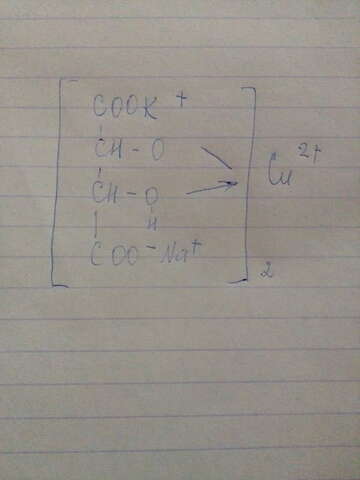 COOK +
CH - O
CH - O Cu 2+
H
COO - Na +
2